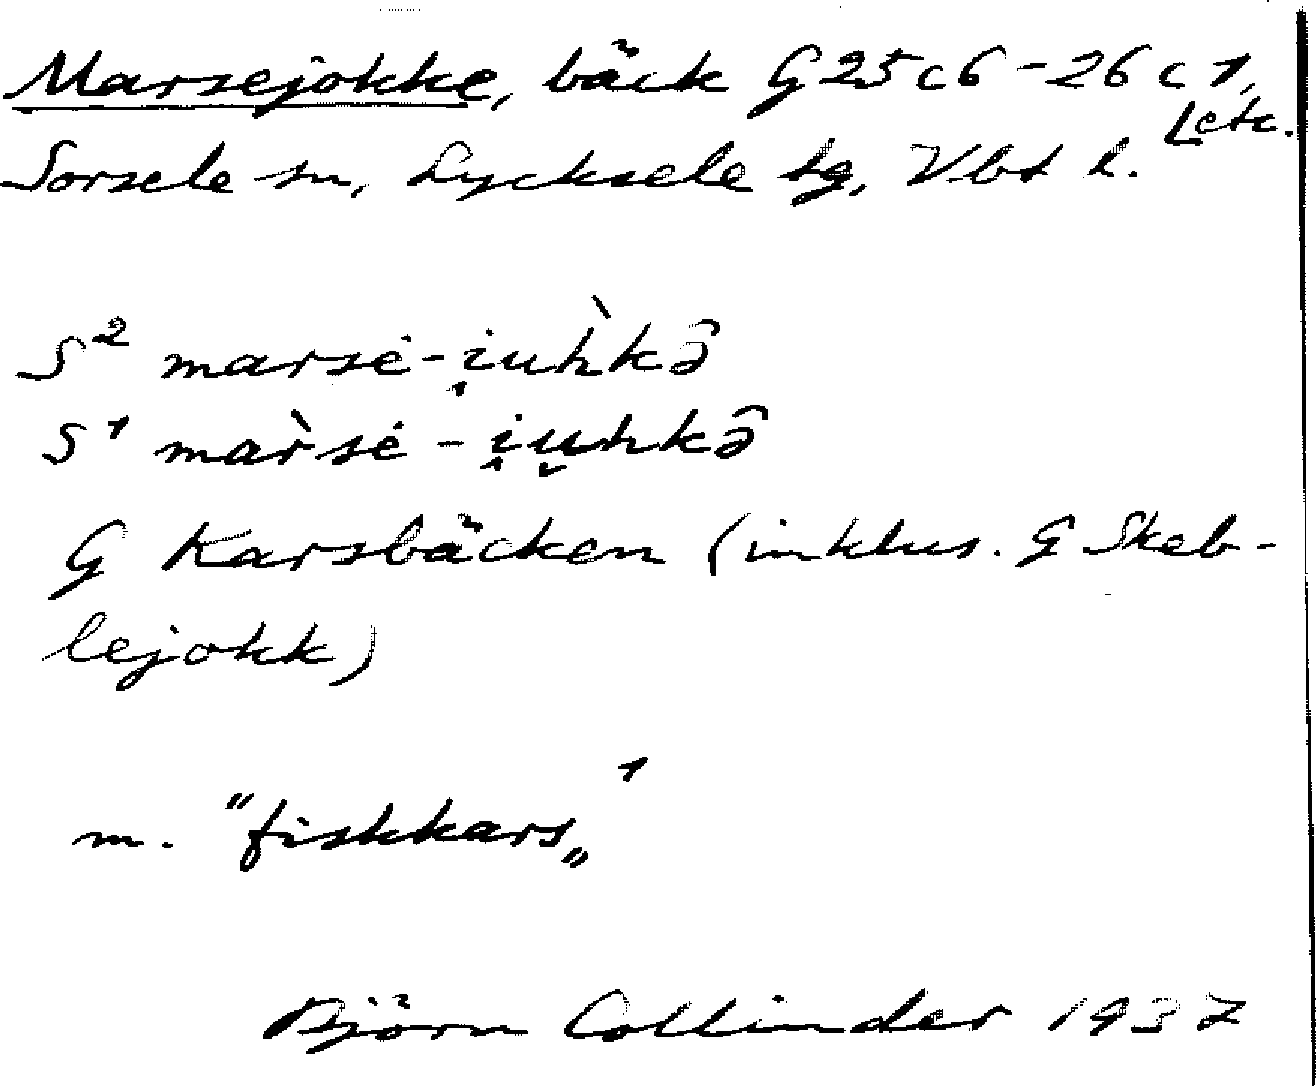 Marsejokke, bäck G 25 c 6 - 26 c 1,
etc.
Sorsele sn, Lycksele tg, Vbt l.
S² marsė-i̭uh̀kə̑
S¹ mar̀sė-i̭u̬hkə̑
G Karsbäcken (inklus. G Skeb-
lejokk)
m. "fiskkars„ ¹
Björn Collinder 1937